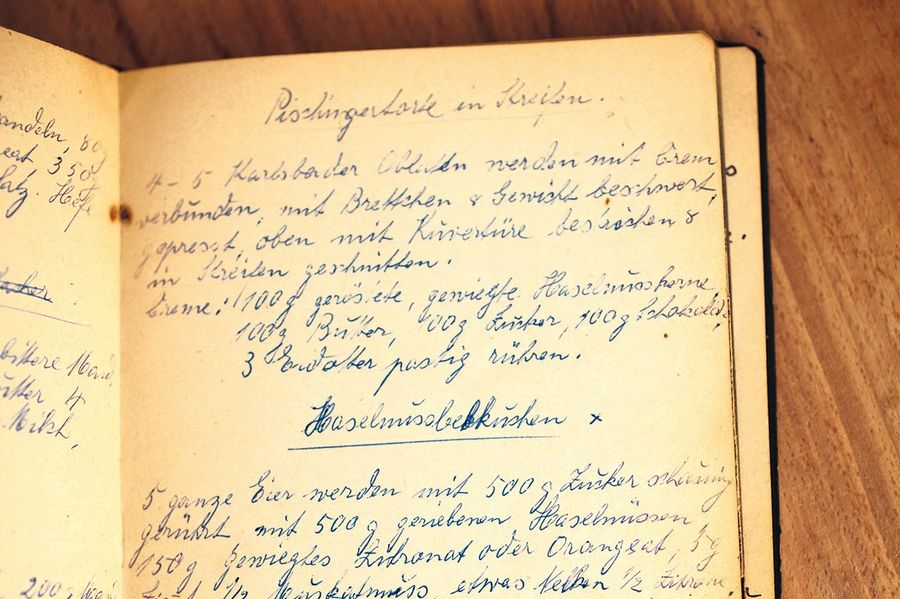 andeln, 80
eat 350
Satz. Hefe
bittere Mand
utter 4
Milch,
200g
Pischingertorte in Streifen.
4-5 Karlsbader Oblaten werden mit Crem
verbunden, mit Brettchen & Gewicht beschwert,
gepresst, oben mit Kuvertüre bestrichen &
in Streifen geschnitten.
Creme: 100g geröstete, gewiegte Haselnusskerne,
100g Butter, 100g Zucker, 100g Schokolade,
3 Eidotter pastig rühren.
Haselnusslebkuchen x
5 ganze Eier werden mit 500g Zucker schaumig
gerührt mit 500g geriebenen Haselnüssen
150g gewiegtes Zitronat oder Orangeat, 5g
Zimt 1/2 Muskatnuss, etwas Nelken 1/2 Zitrone